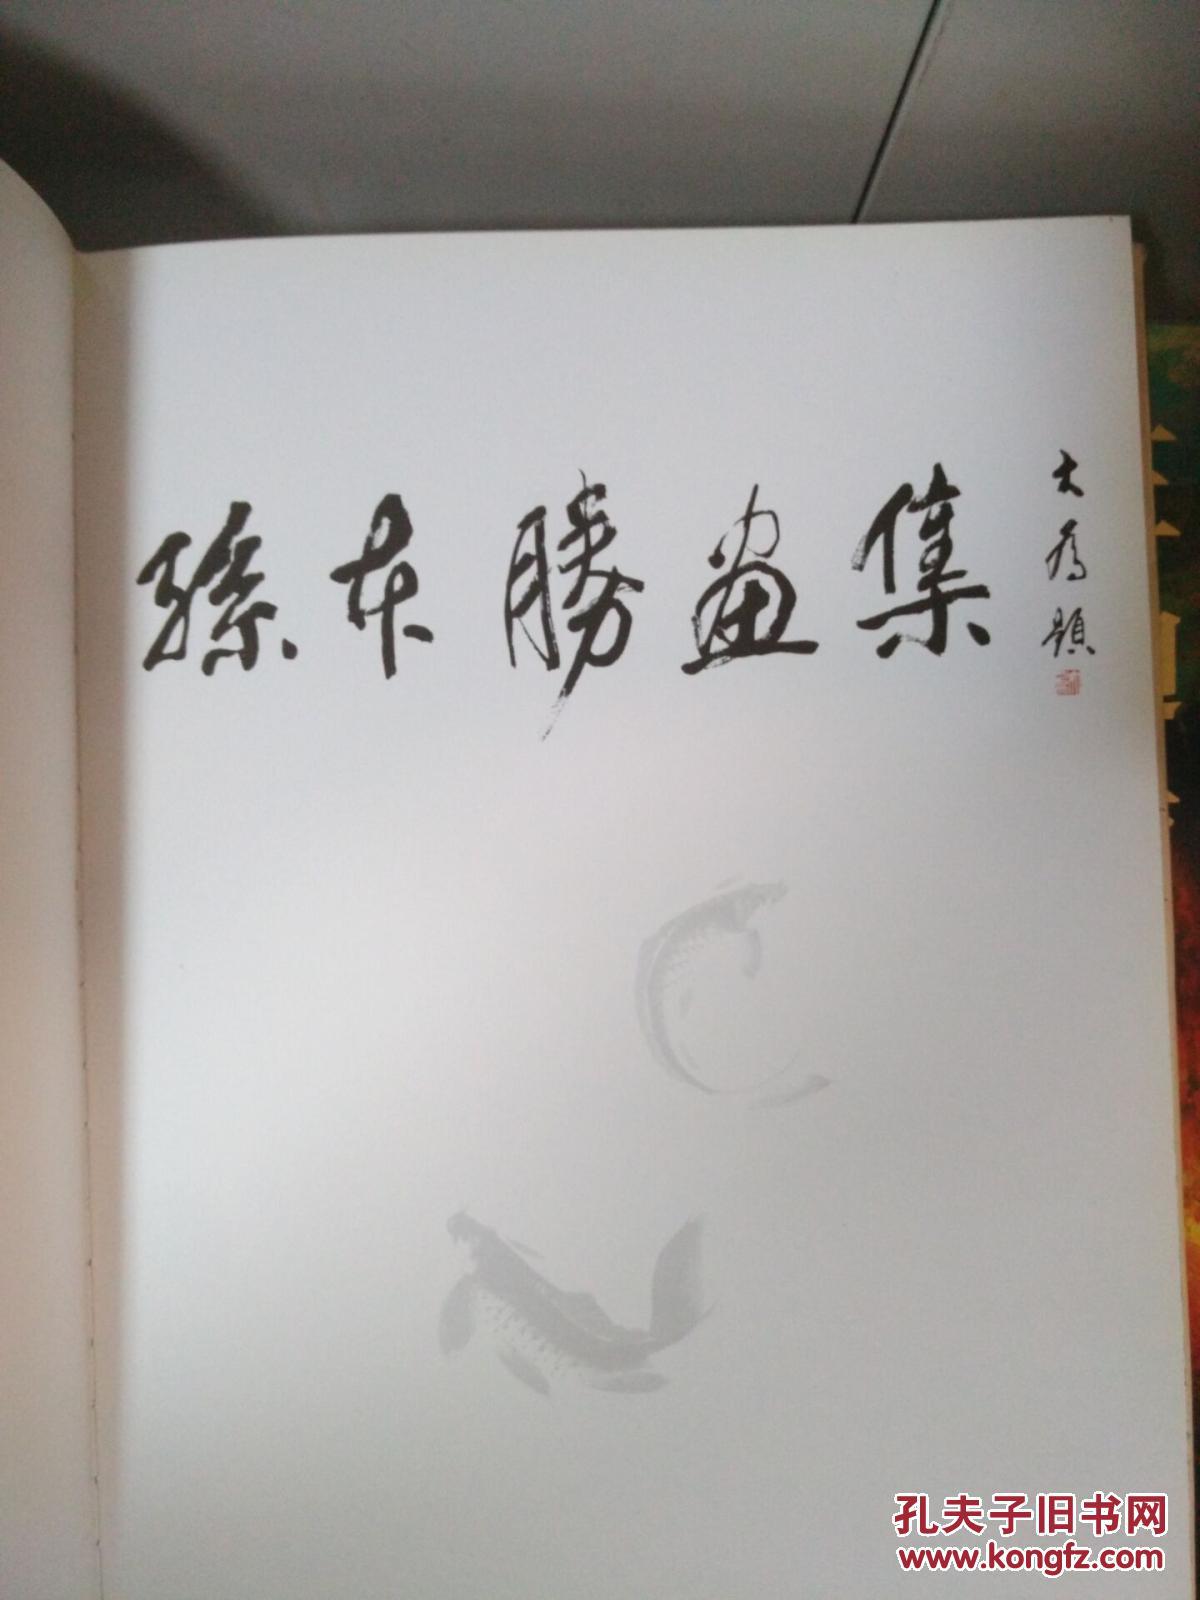 孫本勝畫集
大為題
孔夫子旧书网
www.kongfz.com